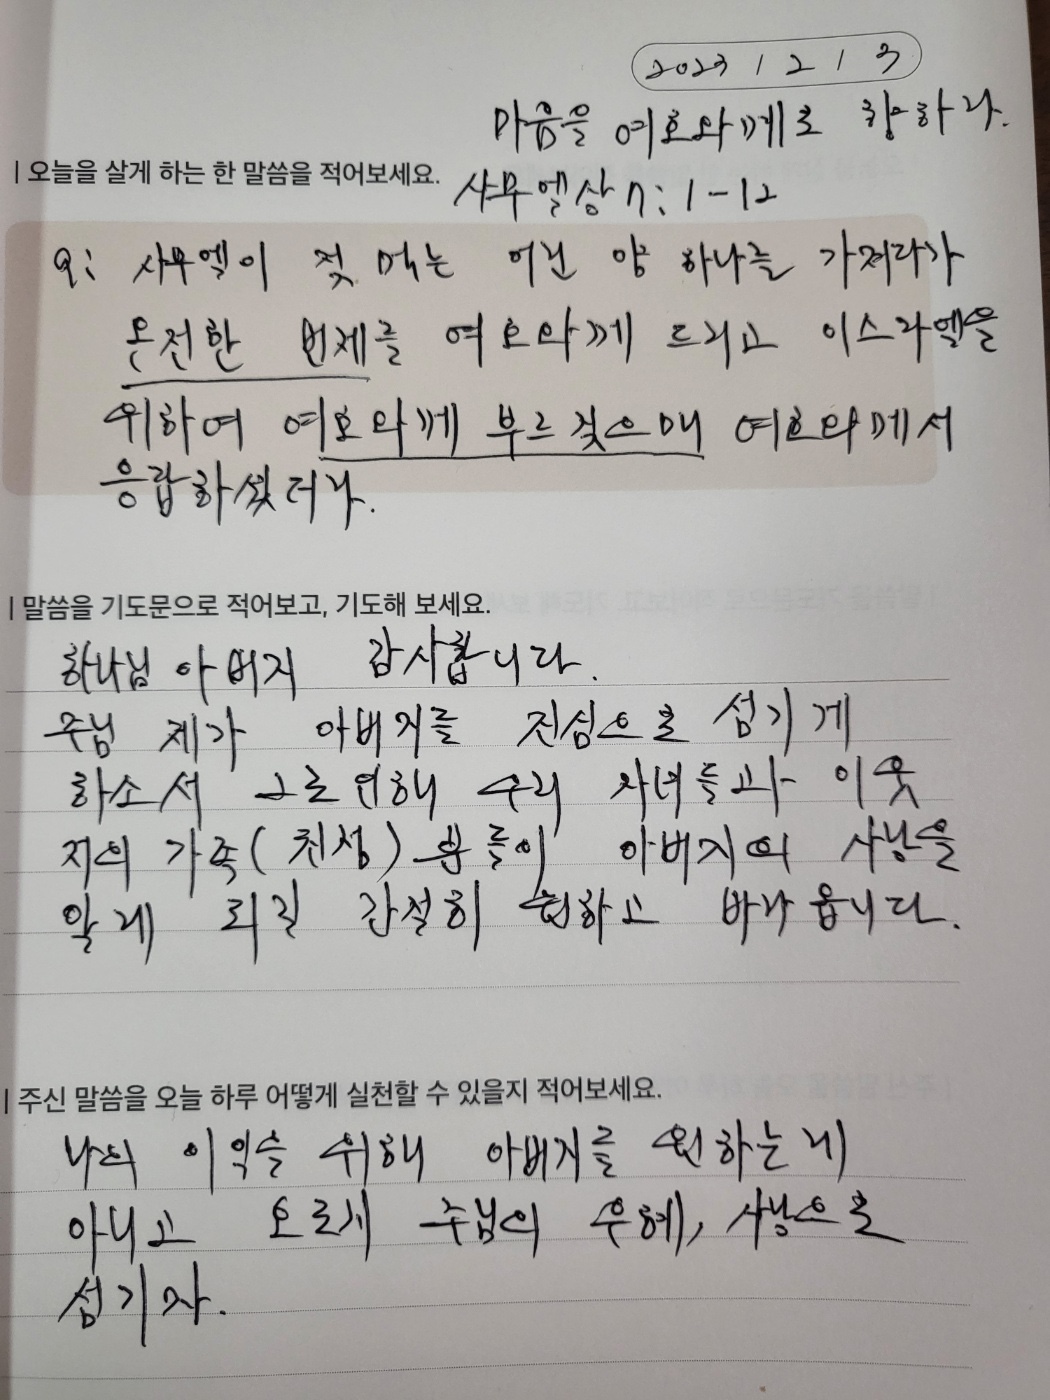 2023 / 2 / 3
마음을 여호와께로 향하라.
| 오늘을 살게 하는 한 말씀을 적어보세요.
사무엘상 7:1-12
9: 사무엘이 젖 먹는 어린 양 하나를 가져다가
온전한 번제를 여호와께 드리고 이스라엘을
위하여 여호와께 부르짖으매 여호와께서
응답하셨더라.
| 말씀을 기도문으로 적어보고, 기도해 보세요.
하나님 아버지 감사합니다.
주님 제가 아버지를 진심으로 섬기게
하소서 그로인해 우리 자녀들과 이웃
저의 가족(친정)분들이 아버지의 사랑을
알게 되길 간절히 원하고 바라옵니다.
| 주신 말씀을 오늘 하루 어떻게 실천할 수 있을지 적어보세요.
나의 이익을 위해 아버지를 원하는게
아니고 오로지 주님의 은혜, 사랑으로
섬기자.